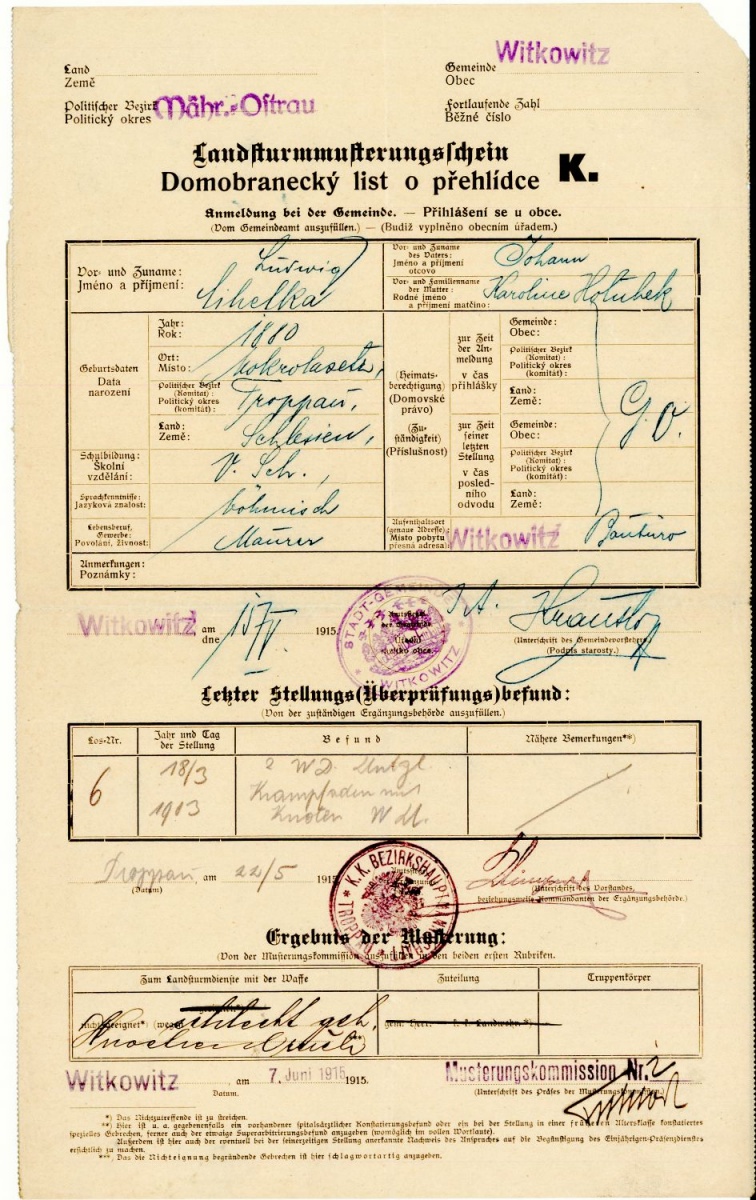 Witkowitz
Land
Země
Gemeinde
Obec
Politischer Bezirk
Politický okres
Mähr.-Ostrau
Fortlaufende Zahl
Běžné číslo
Landsturmmusterungsschein
Domobranecký list o přehlídce K.
Anmeldung bei der Gemeinde. — Přihlášení se u obce.
(Vom Gemeindeamt auszufüllen.) — (Budiž vyplněno obecním úřadem.)
Vor- und Zuname:
Jméno a příjmení:
Ludwig
Vor- und Zuname
des Vaters:
Jméno a příjmení
otcovo
Johann
Vor- und Familienname
der Mutter:
Rodné jméno
a příjmení matčino:
Karoline Holubek
Geburtsdaten
Data
narození
Jahr:
Rok:
1880
Ort:
Místo:
Politischer Bezirk
(Komitat):
Politický okres
(komitát):
Troppau,
Land:
Země:
Schlesien,
Schulbildung:
Školní
vzdělání:
V. Sch.,
Sprachkenntnisse:
Jazyková znalost:
böhmisch
Lebensberuf,
Gewerbe:
Povolání, živnost:
Maurer
(Heimats-
berechtigung)
(Domovské
právo)
(Zu-
ständigkeit)
(Příslušnost)
zur Zeit
der An-
meldung
v čas
přihlášky
Gemeinde:
Obec:
Politischer Bezirk
(Komitat):
Politický okres
(komitát):
Land:
Země:
zur Zeit
seiner
letzten
Stellung
v čas
posled-
ního
odvodu
Gemeinde:
Obec:
Politischer Bezirk
(Komitat):
Politický okres
(komitát):
Land:
Země:
G. O.
Aufenthaltsort
(genaue Adresse):
Místo pobytu
přesná adresa:
Witkowitz Baubüro
Anmerkungen:
Poznámky:
Witkowitz am
dne
15/V. 1915.
STADT-GEMEINDE
WITKOWITZ
(Unterschrift des Gemeindevorstehers)
(Podpis starosty.)
Letzter Stellungs(Überprüfungs)befund:
(Von der zuständigen Ergänzungsbehörde auszufüllen.)
Los-Nr.
Jahr und Tag
der Stellung
Befund
Nähere Bemerkungen**)
6
18/3
1903
Krampfaden mit
Knoten
Troppau, am 22/5 1915
(Datum)
K. K. BEZIRKSHAUPTMANNSCHAFT
TROPPAU
(Unterschrift des Vorstandes,
beziehungsweise Kommandanten der Ergänzungsbehörde.)
Ergebnis der Musterung:
(Von der Musterungskommission auszufüllen in den beiden ersten Rubriken.)
Zum Landsturmdienste mit der Waffe
Zuteilung
Truppenkörper
schlecht geh.
Witkowitz am 7. Juni 1915 1915.
Datum.
Musterungskommission Nr. 2
(Unterschrift des Präses der Musterungskommission.)
*) Das Nichtzutreffende ist zu streichen.
**) Hier ist u. a. gegebenenfalls ein vorhandener (spitalsärztlicher) Konstatierungsbefund oder ein bei der Stellung in einer früheren Altersklasse konstatiertes
spezielles Gebrechen, ferner auch der etwaige Superarbitrierungsbefund anzugeben (womöglich im vollen Wortlaute).
Außerdem ist hier auch der eventuell bei der seinerzeitigen Stellung anerkannte Nachweis des Anspruches auf die Begünstigung des Einjährigen-Präsenzdienstes
ersichtlich zu machen.
***) Das die Nichteignung begründende Gebrechen ist hier schlagwortartig anzugeben.